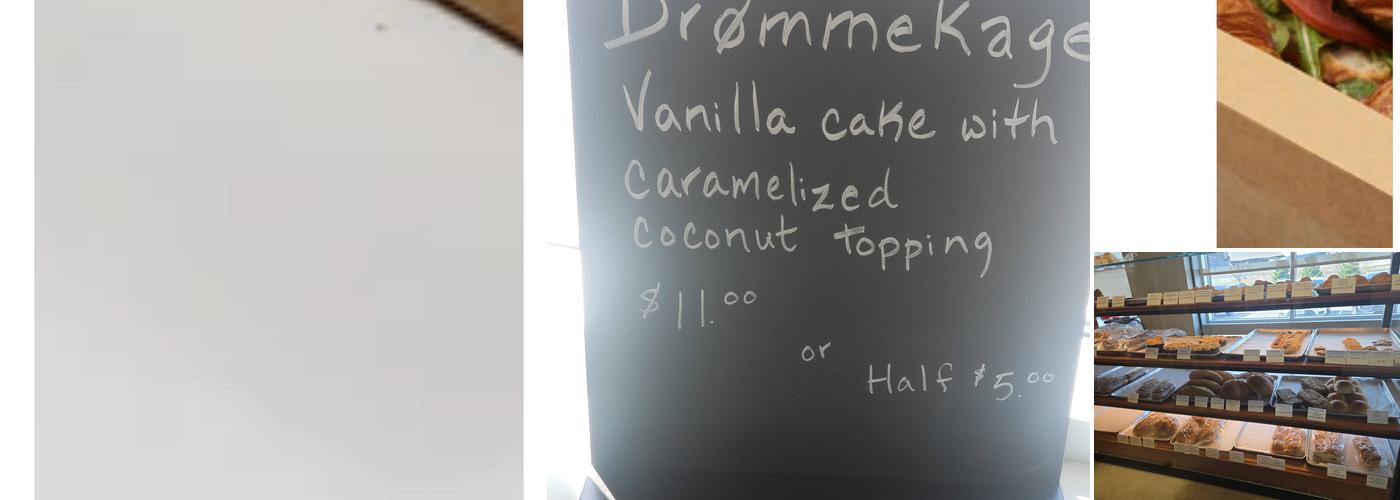 DrømmeKage
Vanilla cake with
Caramelized
Coconut Topping
$11.00
or
Half $5.00